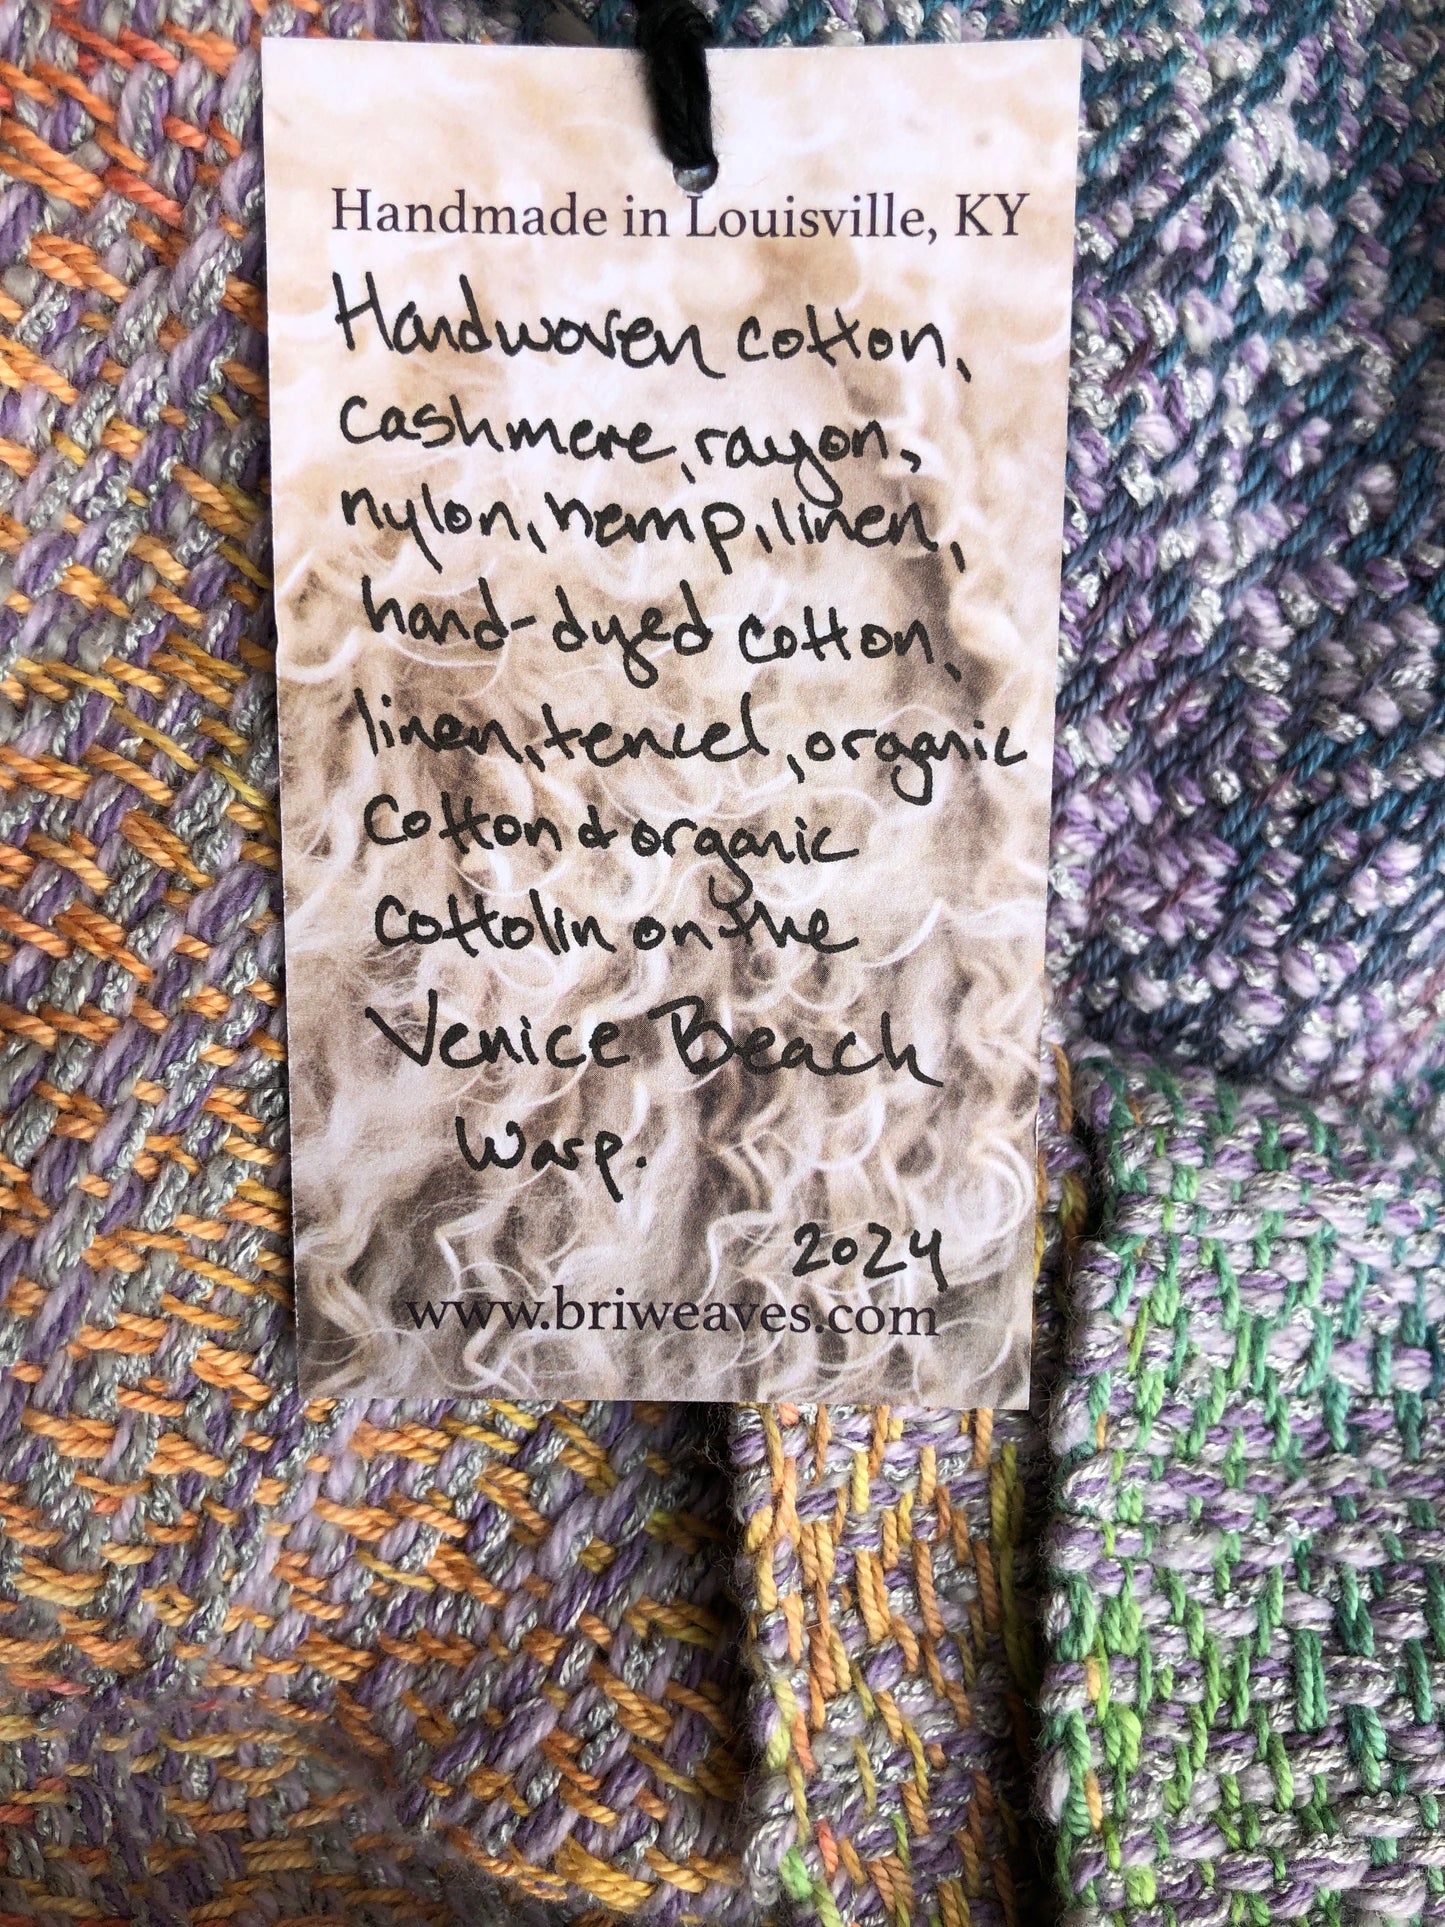 Handmade in Louisville, KY
Handwoven cotton,
cashmere, rayon,
nylon, hemp, linen,
hand-dyed cotton,
linen, tencel, organic
cotton & organic
cottolin on the
Venice Beach
warp.
2024
www.briweaves.com